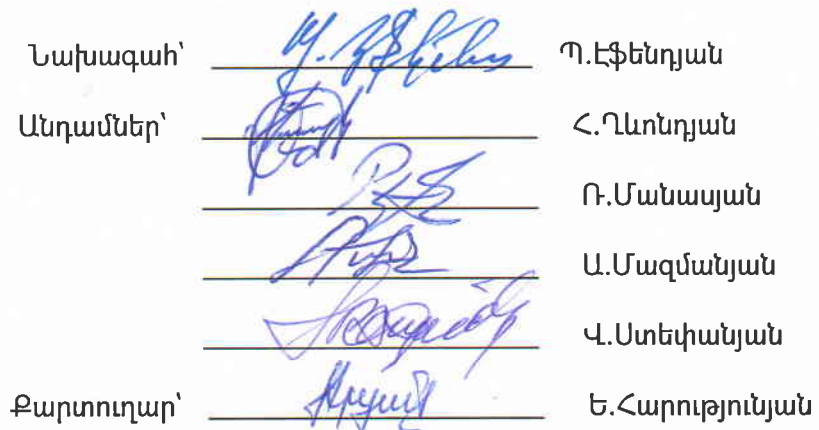 Նախագահ՝ Պ.Էֆենդյան
Անդամներ՝ Հ.Ղևոնդյան
Ռ.Մանասյան
Ա.Մազմանյան
Վ.Ստեփանյան
Քարտուղար՝ Ե.Հարությունյան